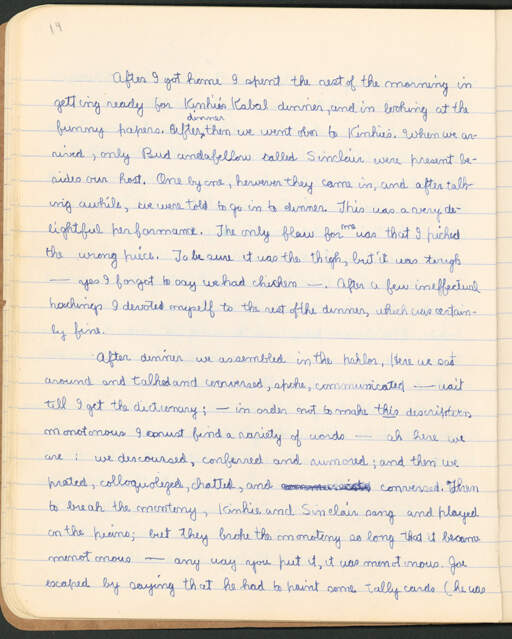 19
After I got home I spent the rest of the morning in
getting ready for Kinkie's Kabal dinner, and in looking at the
dinner
funny papers. After, then we went over to Kinkie's. When we ar-
rived, only Bud and a fellow called Sinclair were present be-
sides our host. One by one, however they came in, and after talk-
ing awhile, we were told to go in to dinner. This was a very de-
lightful performance. The only flaw for me was that I picked
the wrong piece. To be sure it was the thigh, but it was tough
— yes I forgot to say we had chicken —. After a few ineffectual
hackings I devoted myself to the rest of the dinner, which was certain-
ly fine.
After dinner we assembled in the parlor. Here we sat
around and talked and conversed, spoke, communicated — wait
till I get the dictionary; — in order not to make this description
monotonous I must find a variety of words — ah here we
are: we descoursed, conferred and rumored; and then we
prated, colloquolized, chatted, and conversed. Then
to break the monotony, Kinkie and Sinclair sang and played
on the piano; but they broke the monotony so long that it became
monotonous — any way you put it, it was monotonous. Joe
escaped by saying that he had to paint some tally cards (he was